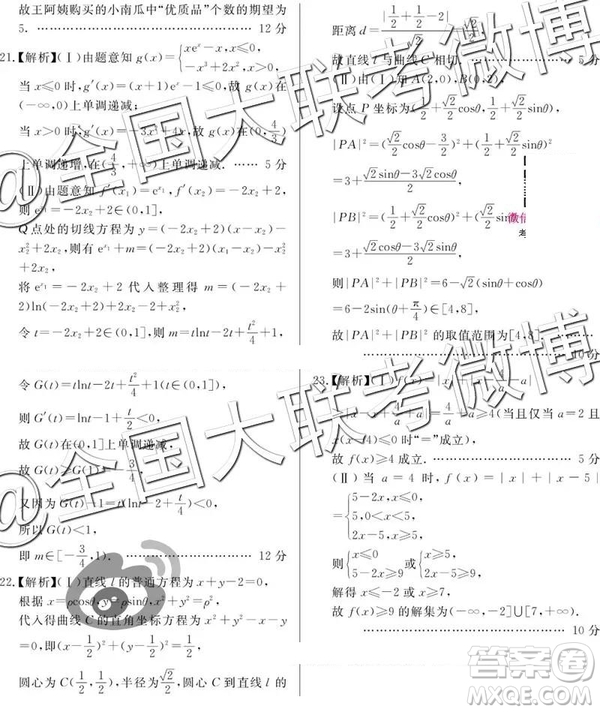 故王阿姨购买的小南瓜中“优质品”个数的期望为
5. …… 12 分
21.【解析】(Ⅰ)由题意知 g(x)={xeˣ-x,x≤0, -x³+2x²,x>0,
当 x≤0 时,g′(x)=(x+1)eˣ-1≤0,故 g(x)在
(-∞,0)上单调递减;
当 x>0 时,g′(x)=-3x²+4x,故 g(x)在(0,4/3)
上单调递增,在(4/3,+∞)上单调递减. …… 5 分
(Ⅱ)由题意知,f′(x₁)=e^{x₁},f′(x₂)=-2x₂+2,
则 e^{x₁}=-2x₂+2∈(0,1],
Q 点处的切线方程为 y=(-2x₂+2)(x-x₂)-x₂²
+2x₂,则有 m=e^{x₁}+(-2x₂+2)(x₁-x₂)-x₂²
+2x₂,
将 e^{x₁}=-2x₂+2 代入整理得 m=(-2x₂+
2)ln(-2x₂+2)+2x₂+x₂²,
令 t=-2x₂+2∈(0,1],则 m=tlnt-2t+t²/4+1,
令 G(t)=tlnt-2t+t²/4+1(t∈(0,1]),
则 G′(t)=lnt-1+t/2<0,
故 G(t)在(0,1]上单调递减,
故 G(t)≥G(1)=-3/4,
又因为 G(t)-1=t(lnt-2+t/4)<0,
所以 G(t)<1,
即 m∈[-3/4,1). …… 12 分
22.【解析】(Ⅰ)直线 l 的普通方程为 x+y-2=0,
根据 x=ρcosθ,y=ρsinθ,x²+y²=ρ²,
代入得曲线 C 的直角坐标方程为 x²+y²-x-y
=0,即(x-1/2)²+(y-1/2)²=1/2,
圆心为 C(1/2,1/2),半径为√2/2,圆心 C 到直线 l 的
距离 d=|1/2+1/2-2|
故直线 l 与曲线 C 相切. …… 5 分
(Ⅱ)由(Ⅰ)知 A(2,0),B(0,2),
设点 P 坐标为(1/2+√2/2cosθ,1/2+√2/2sinθ),
|PA|²=(√2/2cosθ-3/2)²+(1/2+√2/2sinθ)²
=3+(√2sinθ-3√2cosθ)/2.
|PB|²=(1/2+√2/2cosθ)²+(√2/2
=3+(√2cosθ-3√2sinθ)/2.
则|PA|²+|PB|²=6-√2(sinθ+cosθ)
=6-2sin(θ+π/4)∈[4,8],
故|PA|²+|PB|²的取值范围为[4,8].
…… 10 分
23.【解析】(Ⅰ)f(x)=|x|+|x-4/a-a|
≥|x-(x-4/a-a)|=4/a+a≥4(当且仅当 a=2 且
x(x-4)≤0 时“=”成立),
故 f(x)≥4 成立. …… 5 分
(Ⅱ)当 a=4 时,f(x)=|x|+|x-5|
={5-2x,x≤0, 5,0<x<5, 2x-5,x≥5,
则{x≤0 5-2x≥9 或{x≥5 2x-5≥9,
解得 x≤-2 或 x≥7,
故 f(x)≥9 的解集为(-∞,-2]∪[7,+∞).
…… 10 分
@全国大联考微博
@全国大联考微博
微信
考
答案圈
MXQE.COM